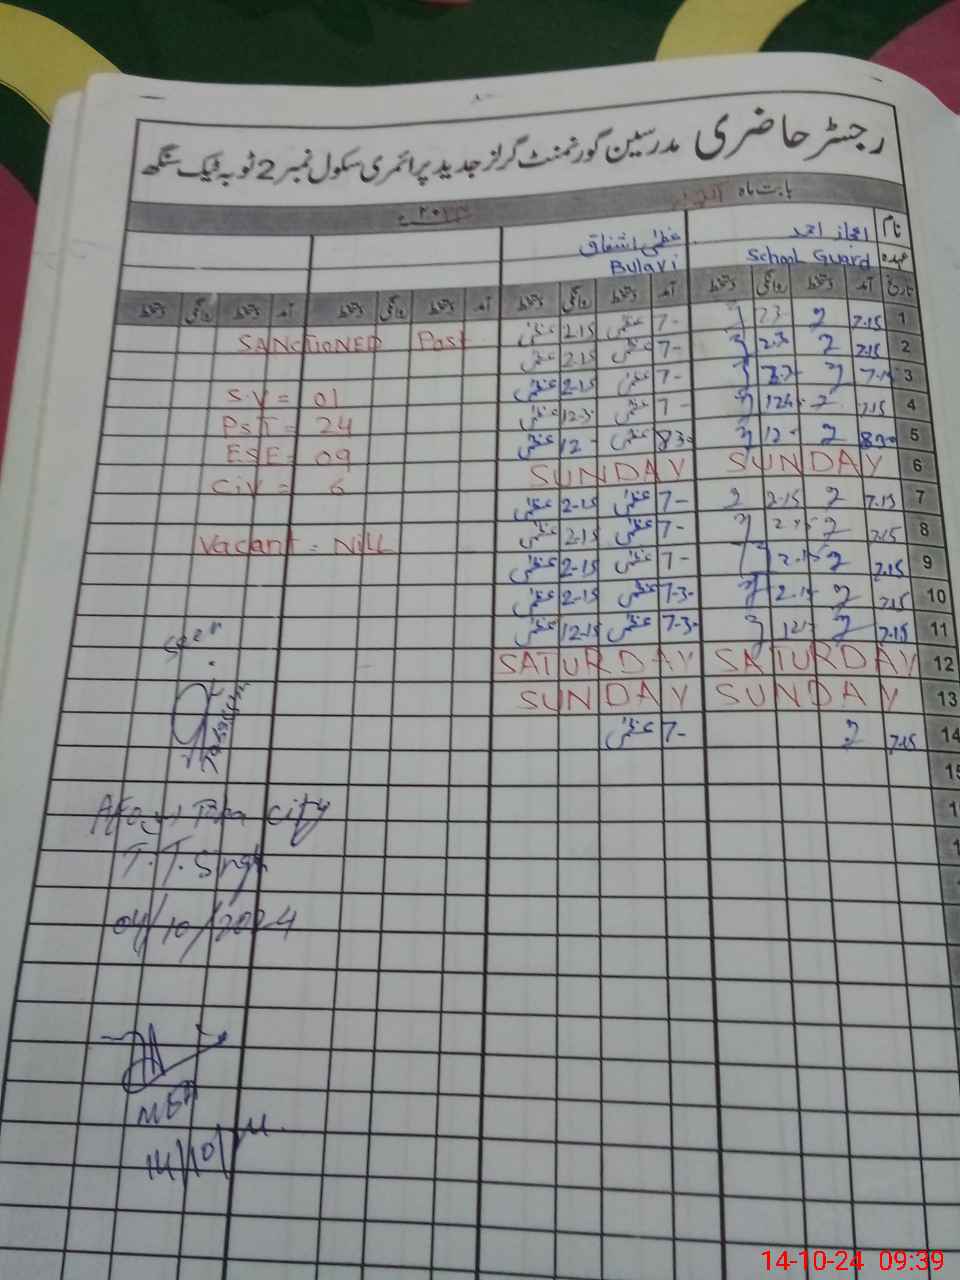 رجسٹر حاضری مدرسین گورنمنٹ گرلز جدید پرائمری سکول نمبر 2 ٹوبہ ٹیک سنگھ
بابت ماہ
نام اعجاز احمد عظمیٰ اشفاق
عہدہ School Guard Bulavi
تاریخ آمد دستخط روانگی دستخط آمد دستخط روانگی دستخط آمد دستخط روانگی دستخط آمد دستخط روانگی دستخط
1 7.15 7- عظمیٰ 2.15 عظمیٰ
SANCTIONED Post
2 7.15 2.30 7- عظمیٰ 2.15 عظمیٰ
3 7.15 7- عظمیٰ 2-15 عظمیٰ
S.V = 01
4 7.15 7- عظمیٰ 12-30 عظمیٰ
PST = 24
5 830 12- 830 عظمیٰ 12- عظمیٰ
ESE = 09
6 SUNDAY SUNDAY
CIV = 6
7 7.15 2.15 7- عظمیٰ 2-15 عظمیٰ
8 7.15 2.15 7- عظمیٰ 2.15 عظمیٰ
Vacant = Nill
9 7.15 2.15 7- عظمیٰ 2-15 عظمیٰ
10 7.15 2.15 7-30 عظمیٰ 2-15 عظمیٰ
11 7.15 7-30 عظمیٰ 12-15 عظمیٰ
12 SATURDAY SATURDAY
Seen
13 SUNDAY SUNDAY
14 7.15 7- عظمیٰ
15
City
T.T. Singh
04/10/2024
MEA
14/10/24
14-10-24 09:39